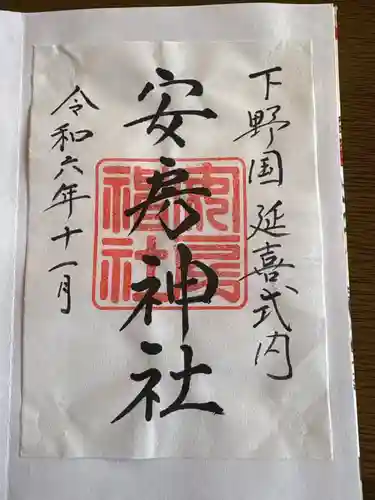 下野国 延喜式内
安房神社
令和六年十一月
安房
神社